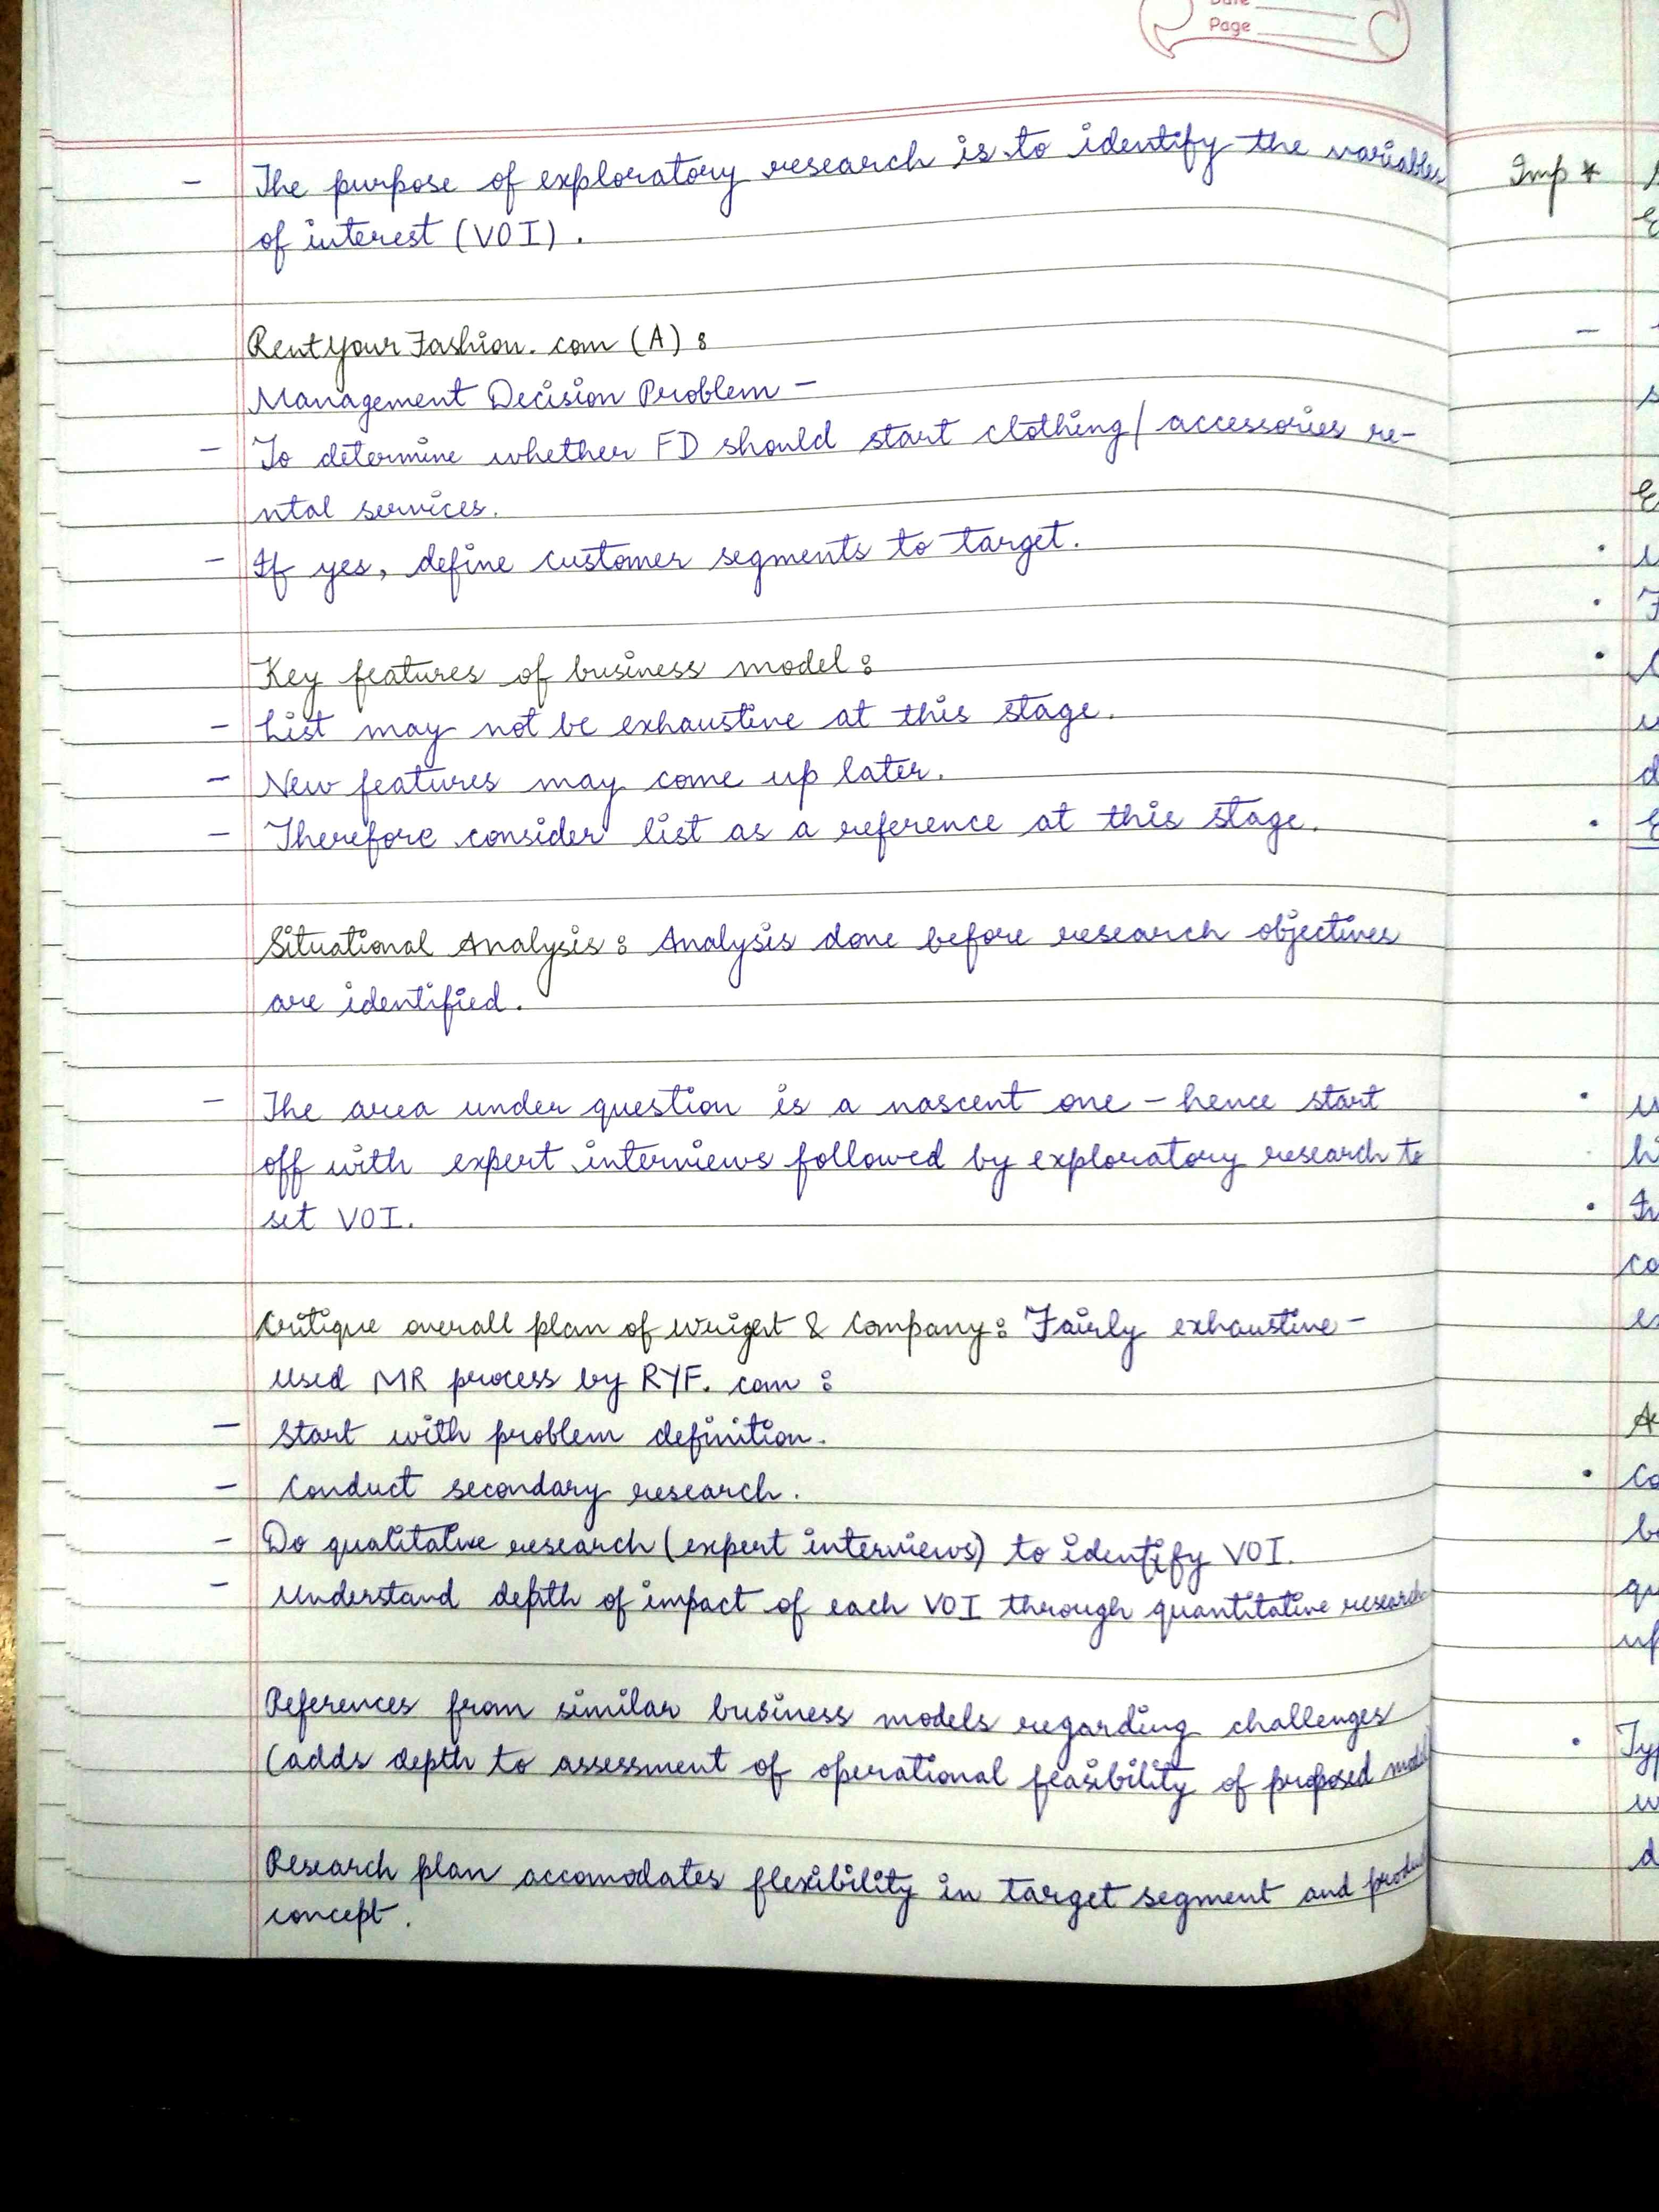 Date
Page
- The purpose of exploratory research is to identify the variables
of interest (VOI).
RentYourFashion.com (A):
Management Decision Problem -
- To determine whether FD should start clothing/accessories re-
ntal services.
- If yes, define customer segments to target.
Key features of business model:
- List may not be exhaustive at this stage.
- New features may come up later.
- Therefore consider list as a reference at this stage.
Situational Analysis: Analysis done before research objectives
are identified.
- The area under question is a nascent one - hence start
off with expert interviews followed by exploratory research to
set VOI.
Critique overall plan of & Company: Fairly exhaustive -
Used MR process by RYF.com:
- Start with problem definition.
- Conduct secondary research.
- Do qualitative research (expert interviews) to identify VOI.
- Understand depth of impact of each VOI through quantitative research
References from similar business models regarding challenges
(adds depth to assessment of operational feasibility of proposed model
Research plan accomodates flexibility in target segment and product
concept.
Imp *